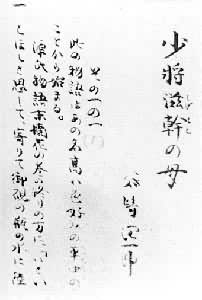 少将滋幹の母
谷崎潤一郎
その一の一
此の物語はあの名高い色好みの平中の
ことから始まる。
源氏物語末摘花の巻の終りの方に、「いとい
とほしと思して、寄りて御硯の瓶の水に陸
一